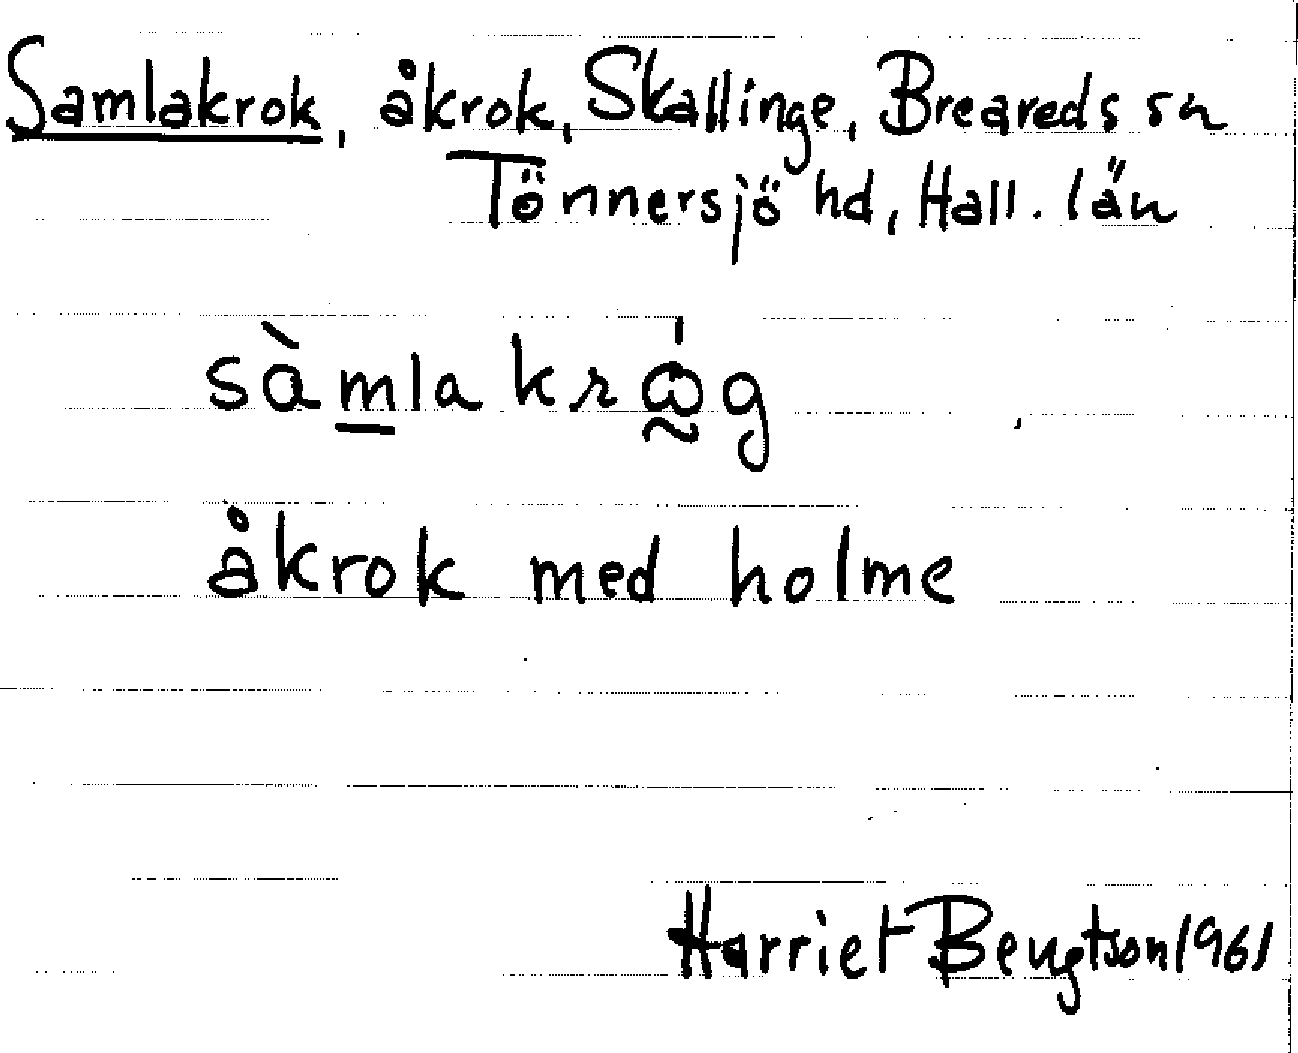 Samlakrok, åkrok, Skallinge, Breareds sn
Tönnersjö hd, Hall. län
sàmlakrω̊g
åkrok med holme
Harriet Bengtson 1961